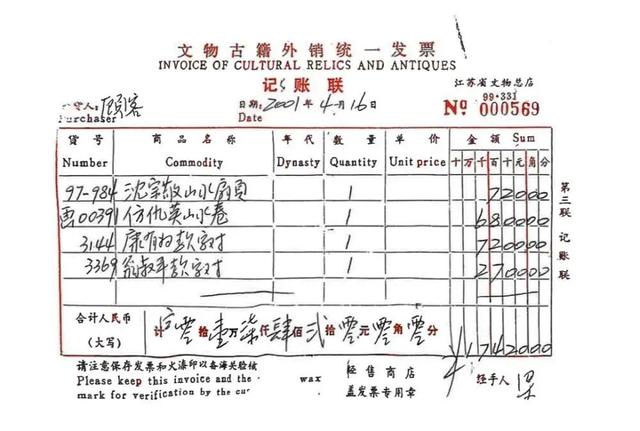 文物古籍外销统一发票
INVOICE OF CULTURAL RELICS AND ANTIQUES
记账联
江苏省文物总店
99·331
顾客
Purchaser
日期: 2001年4月16
Date
No 000569
货号 商品名称 年代 数量 单价 金额 Sum
Number Commodity Dynasty Quantity Unit price 十万千百十元角分
97-984 沈宗敬山水扇頁 1 72000
00391 仿仇英山水卷 1 680000
3144 康有为款字对 1 720000
3369 翁叔平款字对 1 270000
合计人民币
(大写)
计 零拾壹万柒仟肆佰弍拾零元零角零分 ¥1742000
第三联 记账联
请注意保存发票和火漆印以备海关验核
Please keep this invoice and the wax
mark for verification by the cu
经售商店
盖发票专用章
经手人